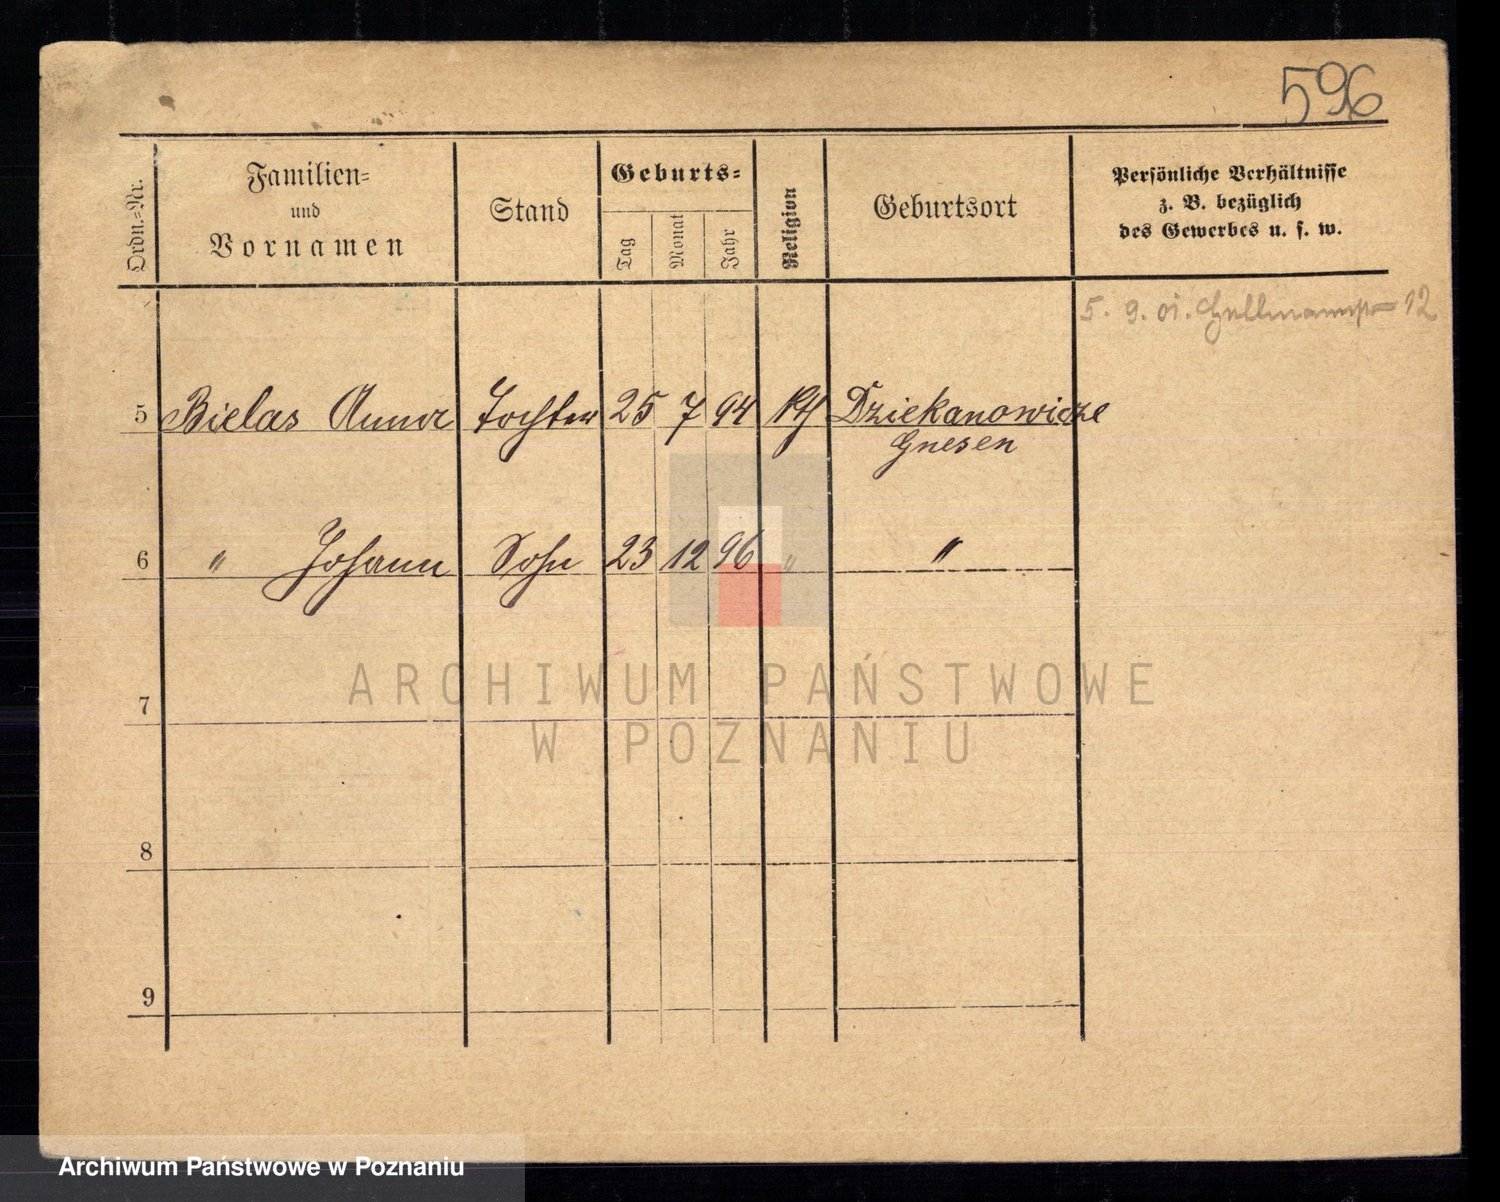 596
Ordn.=Nr.
Familien=
und
Vornamen
Stand
Geburts=
Tag
Monat
Jahr
Religion
Geburtsort
Persönliche Verhältnisse
z. B. bezüglich
des Gewerbes u. s. w.
5. 9. 01. 12
5 Bielas Anna Tochter 25 7 94 kth Dziekanowicze
Gnesen
6 " Johann Sohn 23 12 96 " "
7
8
9
ARCHIWUM PAŃSTWOWE
W POZNANIU
Archiwum Państwowe w Poznaniu